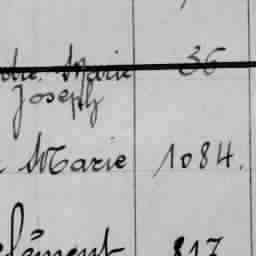 Marie 36
Joseph
Marie 1084.
817